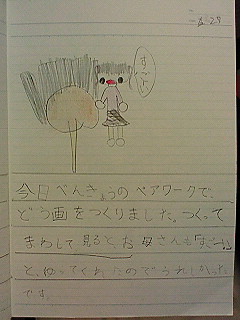 二月28
すごい
今日べんきょうのペアワークで、
どう画をつくりました。つくって
まわして見ると、お母さんも「すごーい」
と、ゆってくれたのでうれしかった
です。